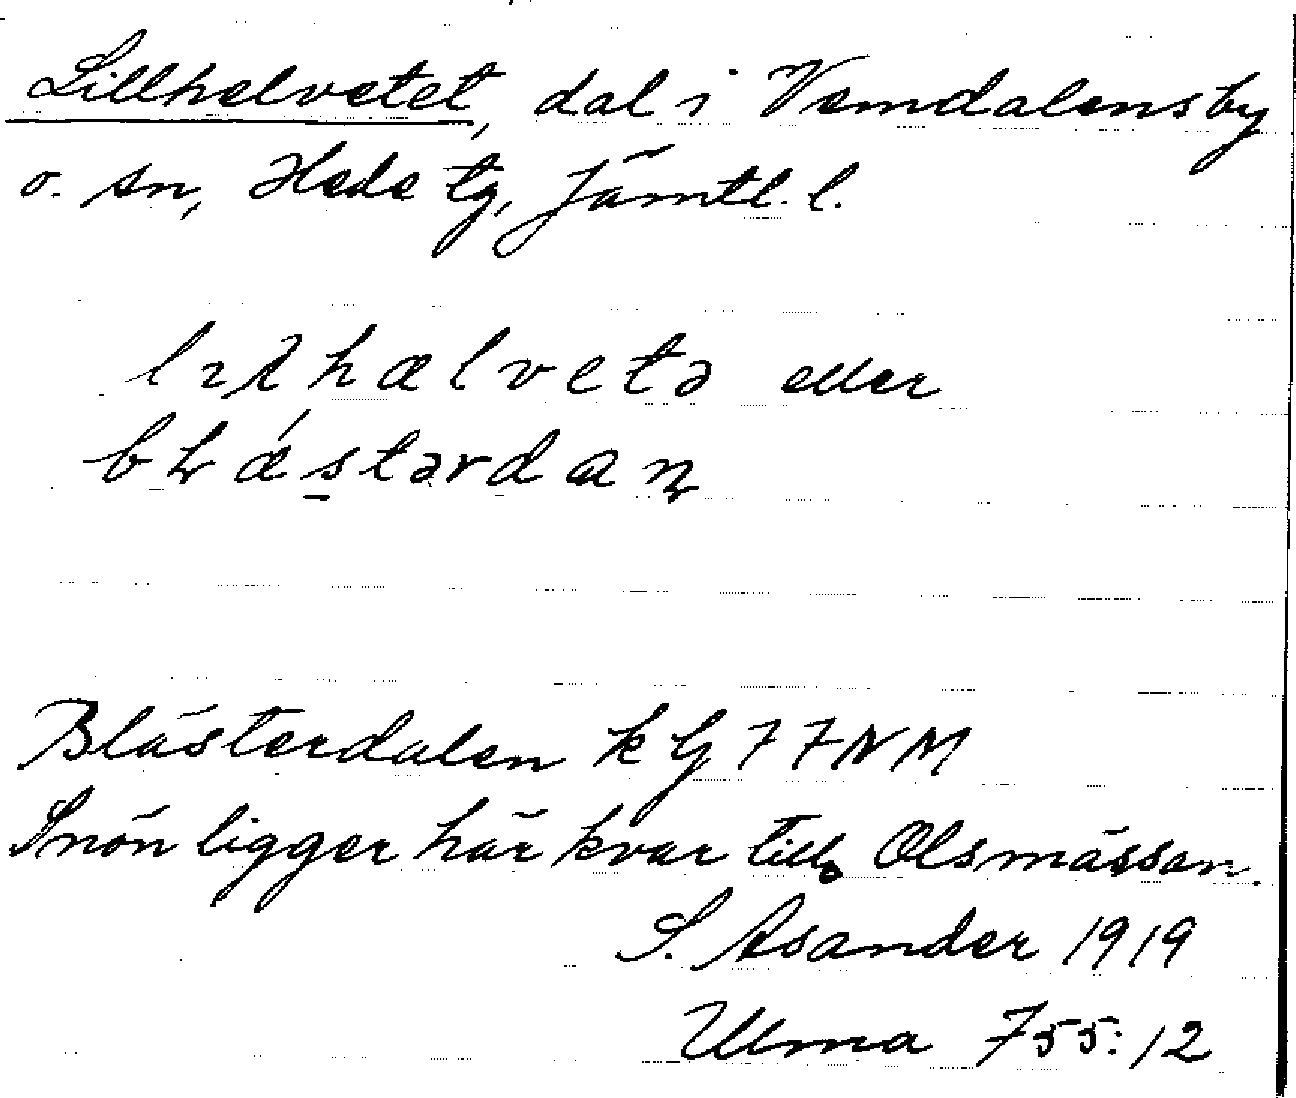 Lillhelvetet, dal i Vemdalens by
o. sn, Hede tg, Jämtl. l.
eller
Blästerdalen k G 77NM
Snön ligger här kvar till Olsmässan.
S. Asander 1919
Ulma 755:12